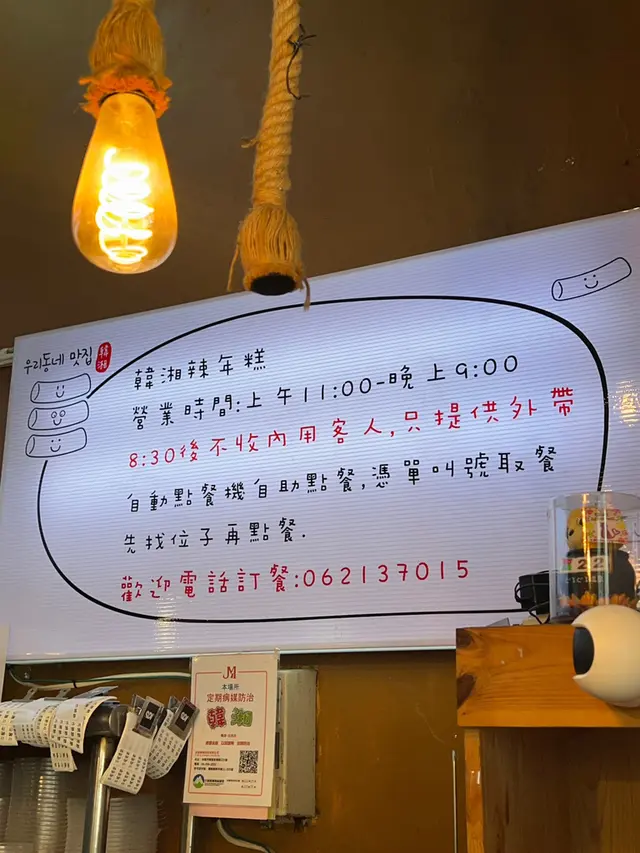 우리동네 맛집
韓湘
韓湘辣年糕
營業時間:上午11:00-晚上9:00
8:30後不收內用客人,只提供外帶
自動點餐機自助點餐,憑單叫號取餐
先找位子再點餐.
歡迎電話訂餐:062137015
本場所
定期病媒防治
韓湘
22